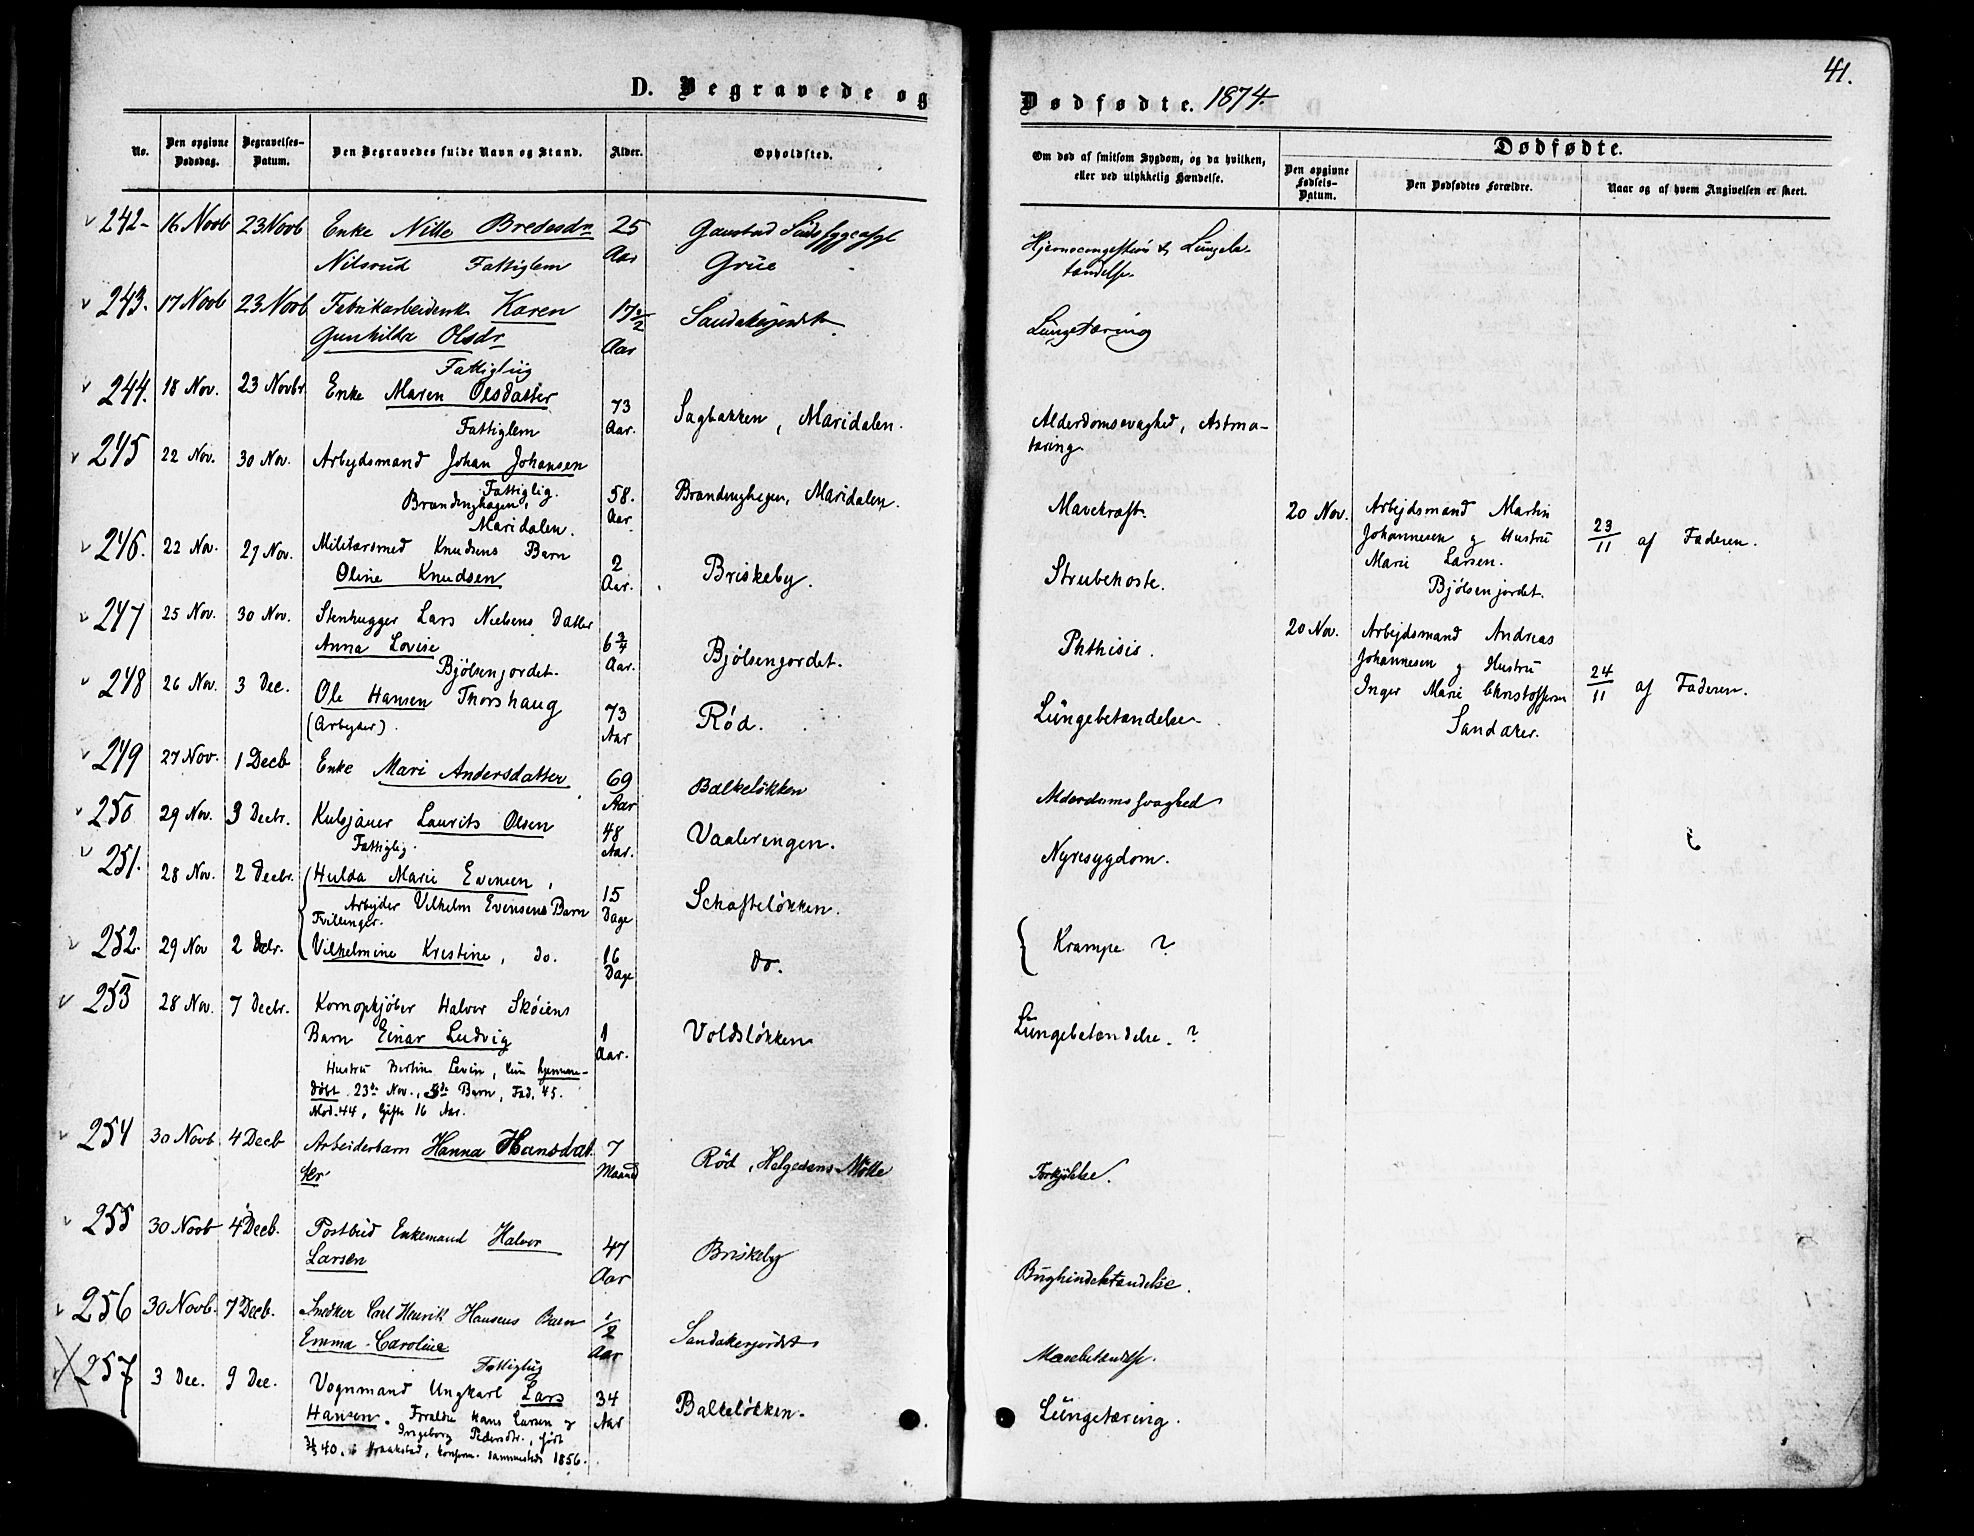 D. Begravede og
Dødfødte. 1874.
41.
No.
Den opgivne Dødsdag.
Begravelses-Datum.
Den Begravedes fulde Navn og Stand.
Alder.
Opholdsted.
Om død af smitsom Sygdom, og da hvilken, eller ved ulykkelig Hændelse.
Dødfødte.
Den opgivne Fødsels-Datum.
Den Dødfødtes Forældre.
Naar og af hvem Angivelsen er skeet.
242- 16 Novb 23 Novb Enke Nille Bredesdr 25 Gaustad Sindssygeasyl
Nilsrud Fattiglem Aar Grue
Hjernecongestion & Lungebe-
tændelse.
243. 17 Novb 23 Novb Fabrikarbeiderske Karen 17 1/2 Sandakerjordet
Gunhilda Olsdr Aar
Fattiglig
Lungetæring
244. 18 Nov. 23 Novbr Enke Maren Olsdatter 73 Sagbakken, Maridalen.
Fattiglem Aar.
Alderdomssvaghed, Astma-
tæring
245 22 Nov. 30 Nov. Arbejdsmand Johan Johansen
Fattiglig. 58. Brændenghagen, Maridalen.
Brændenghagen, Aar.
Maridalen.
Mavekræft.
246. 22 Nov. 29 Nov. Militærsmed Knudsens Barn 2 Briskeby.
Oline Knudsen Aar.
Strubehoste.
247 25 Nov. 30 Nov. Stenhugger Lars Nielsens Datter
Anna Lovise 6 3/4 Bjølsenjordet.
Bjølsenjordet. Aar.
Phthisis.
248 26 Nov. 3 Dec. Ole Hansen Thorshaug 73 Rød.
(Arbejder). Aar
Lungebetændelse
249 27 Nov. 1 Decb Enke Mari Andersdatter 69 Balkeløkken
Aar
Alderdomssvaghed
250 29 Nov. 3 Decbr. Kulsjauer Laurits Olsen 48 Vaalerengen.
Fattiglig. Aar.
Nyresygdom.
251. 28 Nov. 2 Decbr. Hulda Marie Evensen, 15 Schafteløkken.
Arbejder Vilhelm Evensens Barn Dage
Tvillinger.
252. 29 Nov 2 Decbr. Vilhelmine Kristine, do. 16 do.
Dage
Krampe ?
253 28 Nov. 7 Decbr. Kornopkjøber Halvor Skøiens
Barn Einar Ludvig 1 Voldsløkken
Aar.
Hustru Bertine Levin, kun hjemme-
døbt 23de Nov., 3de Barn, Fad. 45.
Mod. 44, Gifte 16 Aar.
Lungebetændelse. ?
254 30 Novb 4 Decb Arbeiderbarn Hanna Hansdat 7 Rød, Helgesens Mølle
ter Maaned
Forkjølelse.
255 30 Novb 4 Decb. Postbud Enkemand Halvor 47 Briskeby
Larsen Aar
Bughindebetændelse.
256 30 Novb. 7 Decb. Snedker Carl Henrik Hansens Barn 1/2 Sandakerjordet
Emma Caroline Aar
Fattiglig
Mavebetændelse.
257 3 Dec. 9 Dec. Vognmand Ungkarl Lars 34 Balkeløkken.
Hansen. Forældre Hans Larsen & Aar
Ingeborg Pedersdtr., født
40. i Kraakstad, konfirm. sammesteds 1856.
Lungetæring.
20 Nov. Arbejdsmand Martin
Johannesen g Hustru 23/11 af Faderen.
Marie Larsen.
Bjølsenjordet.
20 Nov. Arbejdsmand Andreas
Johannesen g Hustru 24/11 af Faderen.
Inger Marie Christoffersen
Sandaker.